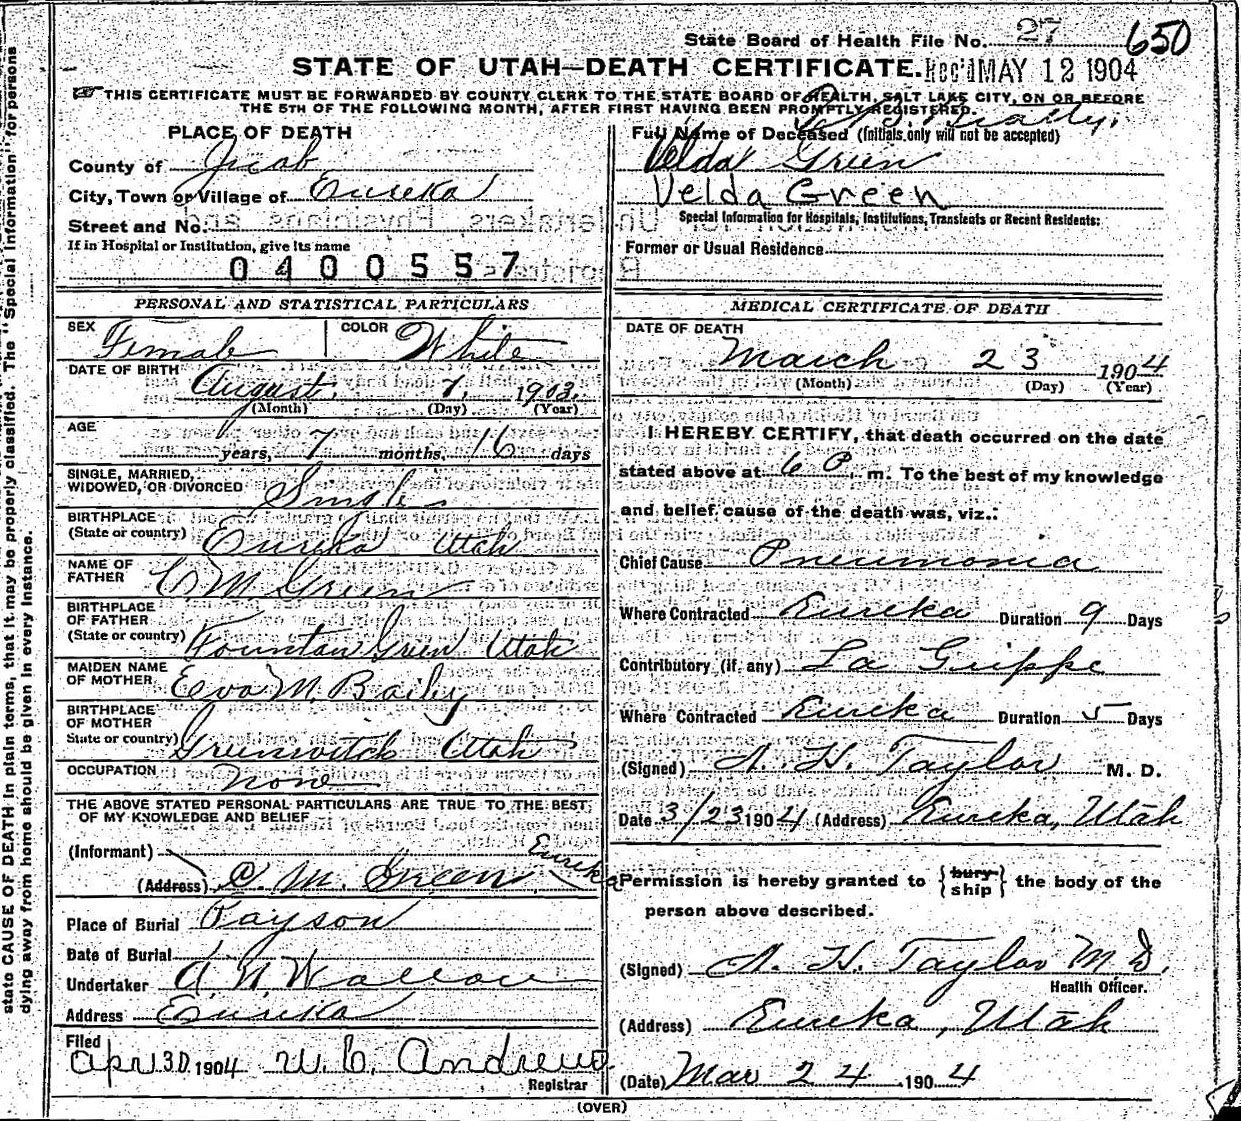 State Board of Health File No. 27 650
STATE OF UTAH—DEATH CERTIFICATE. Rec'd MAY 12 1904
THIS CERTIFICATE MUST BE FORWARDED BY COUNTY CLERK TO THE STATE BOARD OF HEALTH, SALT LAKE CITY, ON OR BEFORE
THE 5TH OF THE FOLLOWING MONTH, AFTER FIRST HAVING BEEN PROMPTLY REGISTERED.
PLACE OF DEATH
County of Juab
City, Town or Village of Eureka
Street and No.
If in Hospital or Institution, give its name
0400557
Full Name of Deceased (Initials only will not be accepted)
Velda Green
Velda Green
Special Information for Hospitals, Institutions, Transients or Recent Residents:
Former or Usual Residence
PERSONAL AND STATISTICAL PARTICULARS
SEX Female COLOR White
DATE OF BIRTH August 7, 1903.
(Month) (Day) (Year)
AGE
years, 7 months, 16 days
SINGLE, MARRIED,
WIDOWED, OR DIVORCED Single
BIRTHPLACE
(State or country) Eureka Utah
NAME OF
FATHER C M Green
BIRTHPLACE
OF FATHER
(State or country) Fountan Green Utah
MAIDEN NAME
OF MOTHER Eva M. Baily
BIRTHPLACE
OF MOTHER
State or country) Greenwitch Utah
OCCUPATION None
THE ABOVE STATED PERSONAL PARTICULARS ARE TRUE TO THE BEST
OF MY KNOWLEDGE AND BELIEF
(Informant)
(Address) C. M. Green Eureka
Place of Burial Payson
Date of Burial
Undertaker A. N. Wallace
Address Eureka
Filed
Apr 30 1904 W. C. Andrews
Registrar
MEDICAL CERTIFICATE OF DEATH
DATE OF DEATH
March 23 1904
(Month) (Day) (Year)
I HEREBY CERTIFY, that death occurred on the date
stated above at 6 P. m. To the best of my knowledge
and belief, cause of the death was, viz.:
Chief Cause Pneumonia
Where Contracted Eureka Duration 9 Days
Contributory (if any) La Grippe
Where Contracted Eureka Duration 5 Days
(Signed) A. H. Taylor M. D.
Date 3/23 1904 (Address) Eureka, Utah
Permission is hereby granted to {bury ship} the body of the
person above described.
(Signed) A. H. Taylor M.D.
Health Officer.
(Address) Eureka, Utah
(Date) Mar 24 1904
(OVER)
state CAUSE OF DEATH in plain terms, that it may be properly classified. The "Special Information" for persons
dying away from home should be given in every instance.